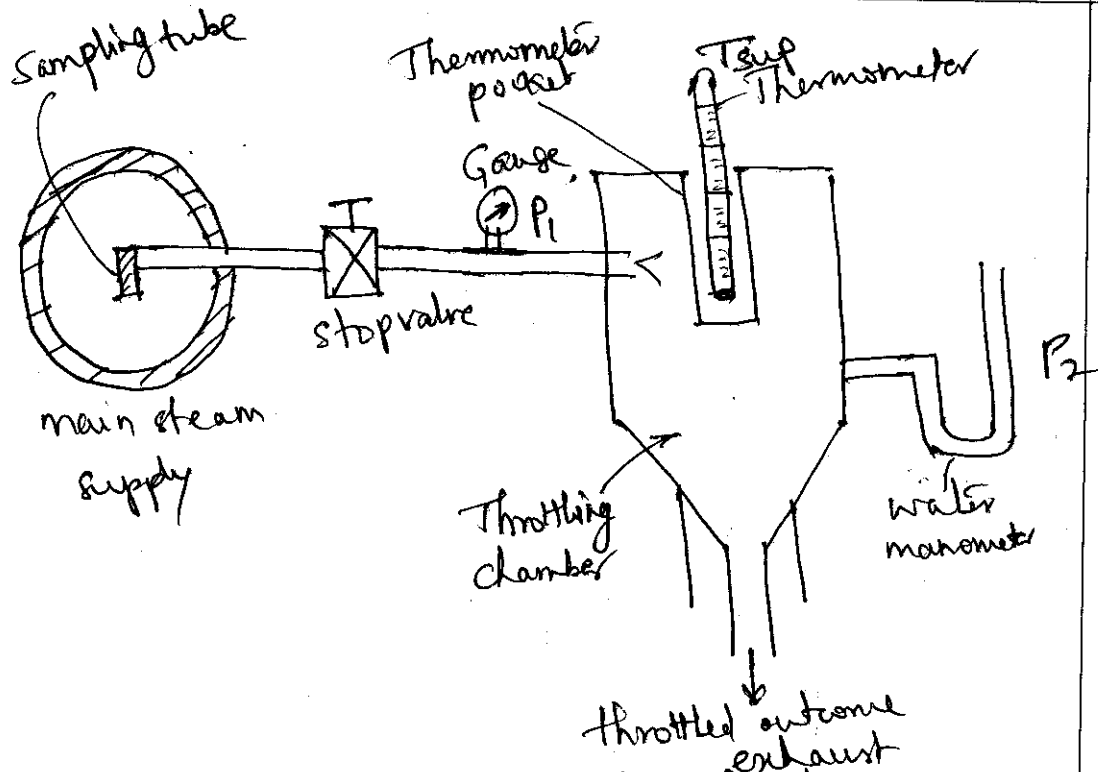 Sampling tube
Thermometer
pocket
Tsup
Thermometer
Gauge
P1
stopvalve
main steam
supply
P2
Throttling
chamber
water
manometer
throttled outcome
exhaust